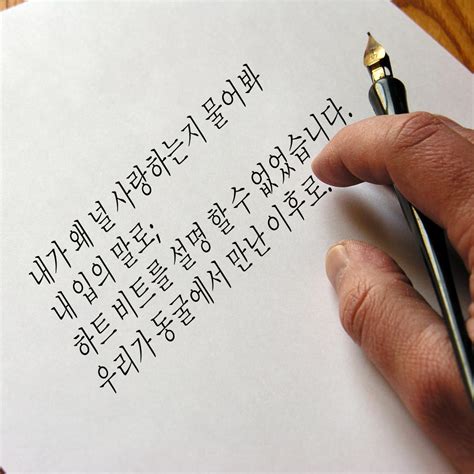 내가 왜 널 사랑하는지 물어봐
내 입의 말로;
하트 비트를 설명 할 수 없었습니다.
우리가 동굴에서 만난 이후로.